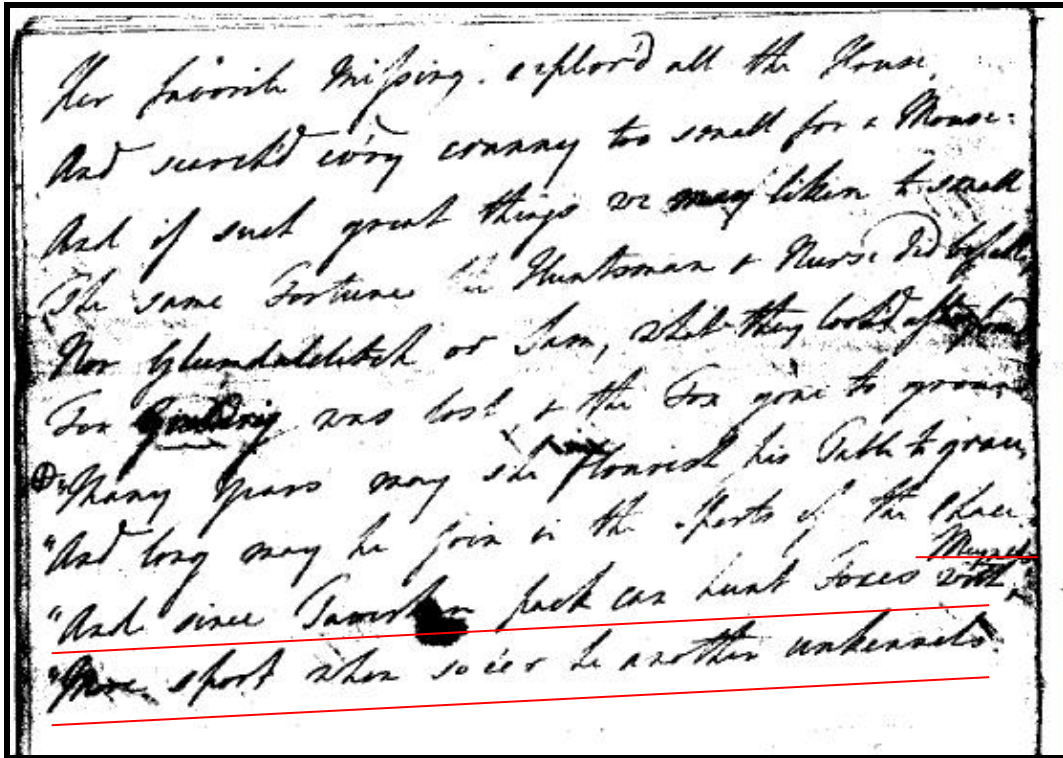 Her favorite Missing. explor'd all the House,
And search'd ev'ry cranny too small for a Mouse:
And if such great things we may liken to small
The same Fortune the Huntsman & Nurse did befall,
Nor Glumdalclitch or Sam, while they look'd after found
For Grildrig was lost & the Fox gone to ground
"Many Years may she flourish his Table to grace,
"And long may he join in the Sports of the Chace.
Meynell
"And since pack can hunt Foxes with
"More sport when so e'er he another unkennels.